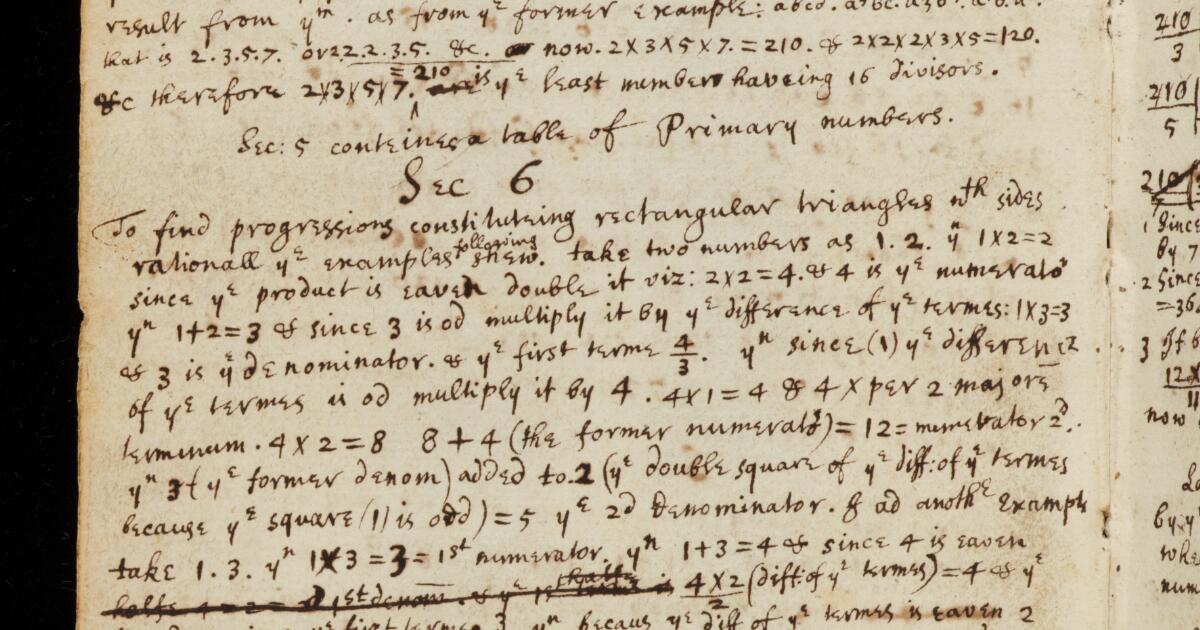 result from yᵐ. as from yᵉ former Example: abcd. a³bc. a³b³. a⁷b.
that is 2.3.5.7. or 2.2.2.3.5. &c. now. 2×3×5×7.=210. & 2×2×2×3×5=120.
&c therefore 2×3×5×7. =210 is yᵉ least number haveing 16 divisors.
Sec: 5 conteines a table of Primary numbers.
Sec 6
To find progressions constituteing rectangular triangles wth sides
rationall yᵉ examples following shew. take two numbers as 1.2. yn 1×2=2
since yᵉ product is eaven double it viz: 2×2=4. & 4 is yᵉ numerator
yⁿ 1+2=3 & since 3 is od multiply it by yᵉ difference of yᵉ termes: 1×3=3
& 3 is yᵉ denominator. & yᵉ first terme 4/3. yⁿ since (1) yᵉ difference
of yᵉ termes is od multiply it by 4. 4×1=4 & 4 × per 2 majorē
terminum. 4×2=8 8+4 (the former numeratoʳ)=12= numerator 2ᵈ.
yⁿ 3 (yᵉ former denom) added to 2 (yᵉ double square of yᵉ diff: of yᵉ termes
because yᵉ square (1) is odd)=5 yᵉ 2d Denominator. & ad anothᵉ Example
take 1.3. yⁿ 1×3=3=1st numerator. yⁿ 1+3=4 & since 4 is eaven
halfe 4=2= 1st denom. & yᵉ 4×2/2 (diff: of yᵉ termes)=4 & yᵉ
yᵉ first termes 3 yⁿ becaus yᵉ diff of yᵉ termes is eaven 2
210
3
210
5
210
1 Since
by 7
2 Since
=36
3 If
12×
11
now
by y
whe
num